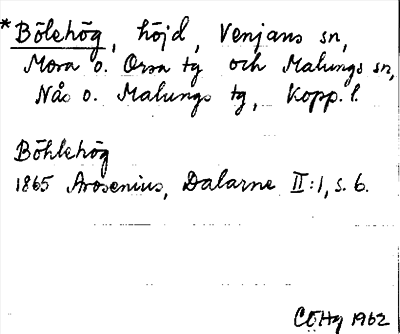 *Bölehög, höjd, Venjans sn,
Mora o. Orsa tg och Malungs sn,
Nås o. Malungs tg, Kopp. l.
Böhlehög
1865 Arosenius, Dalarne II:1, s. 6.
CÖHg 1962